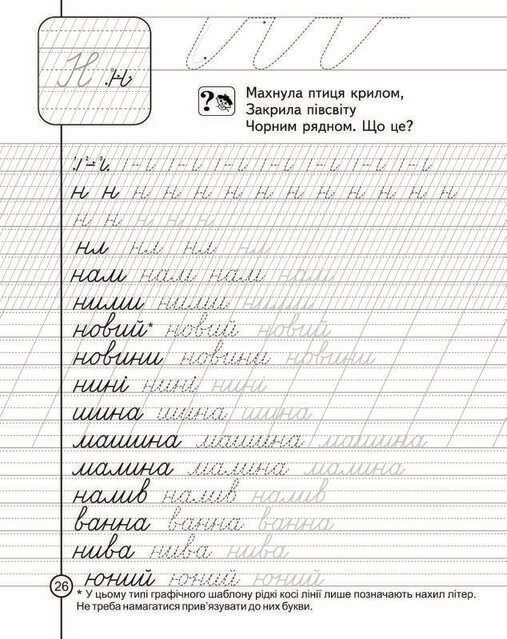 Н н
Махнула птиця крилом,
Закрила півсвіту
Чорним рядном. Що це?
н н н н н н н н н н н н н
н н н н н
нл нл нл нл
нам нам нам нам
ними ними ними
новий* новий новий
новини новини новини
нині нині нині
шина шина шина
машина машина машина
малина малина малина
налив налив налив
ванна ванна ванна
нива нива нива
юний юний юний
26
* У цьому типі графічного шаблону рідкі косі лінії лише позначають нахил літер.
Не треба намагатися прив’язувати до них букви.